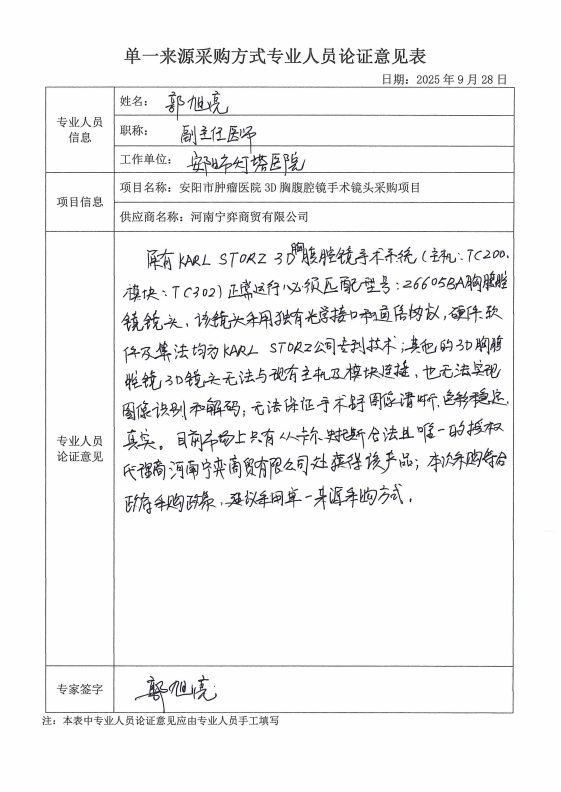 单一来源采购方式专业人员论证意见表
日期：2025 年 9 月 28 日
专业人员
信息
姓名： 郭旭亮
职称： 副主任医师
工作单位： 安阳市灯塔医院
项目信息
项目名称：安阳市肿瘤医院 3D 胸腹腔镜手术镜头采购项目
供应商名称：河南宁弈商贸有限公司
专业人员
论证意见
原有KARL STORZ 3D胸腹腔镜手术系统（主机：TC200,
模块：TC302）正常运行必须匹配型号：26605BA胸腹腔
镜镜头，该镜头采用独有光学接口和通信协议，硬件软
件及算法均为KARL STORZ公司专利技术；其他的3D胸腹
腔镜3D镜头无法与现有主机及模块连接，也无法实现
图像识别和解码；无法保证手术时图像清晰，色彩稳定，
真实。目前市场上只有从卡尔史托斯合法且唯一的授权
代理商河南宁弈商贸有限公司处获得该产品；本次采购符合
政府采购政策，建议采用单一来源采购方式。
专家签字
郭旭亮
注：本表中专业人员论证意见应由专业人员手工填写